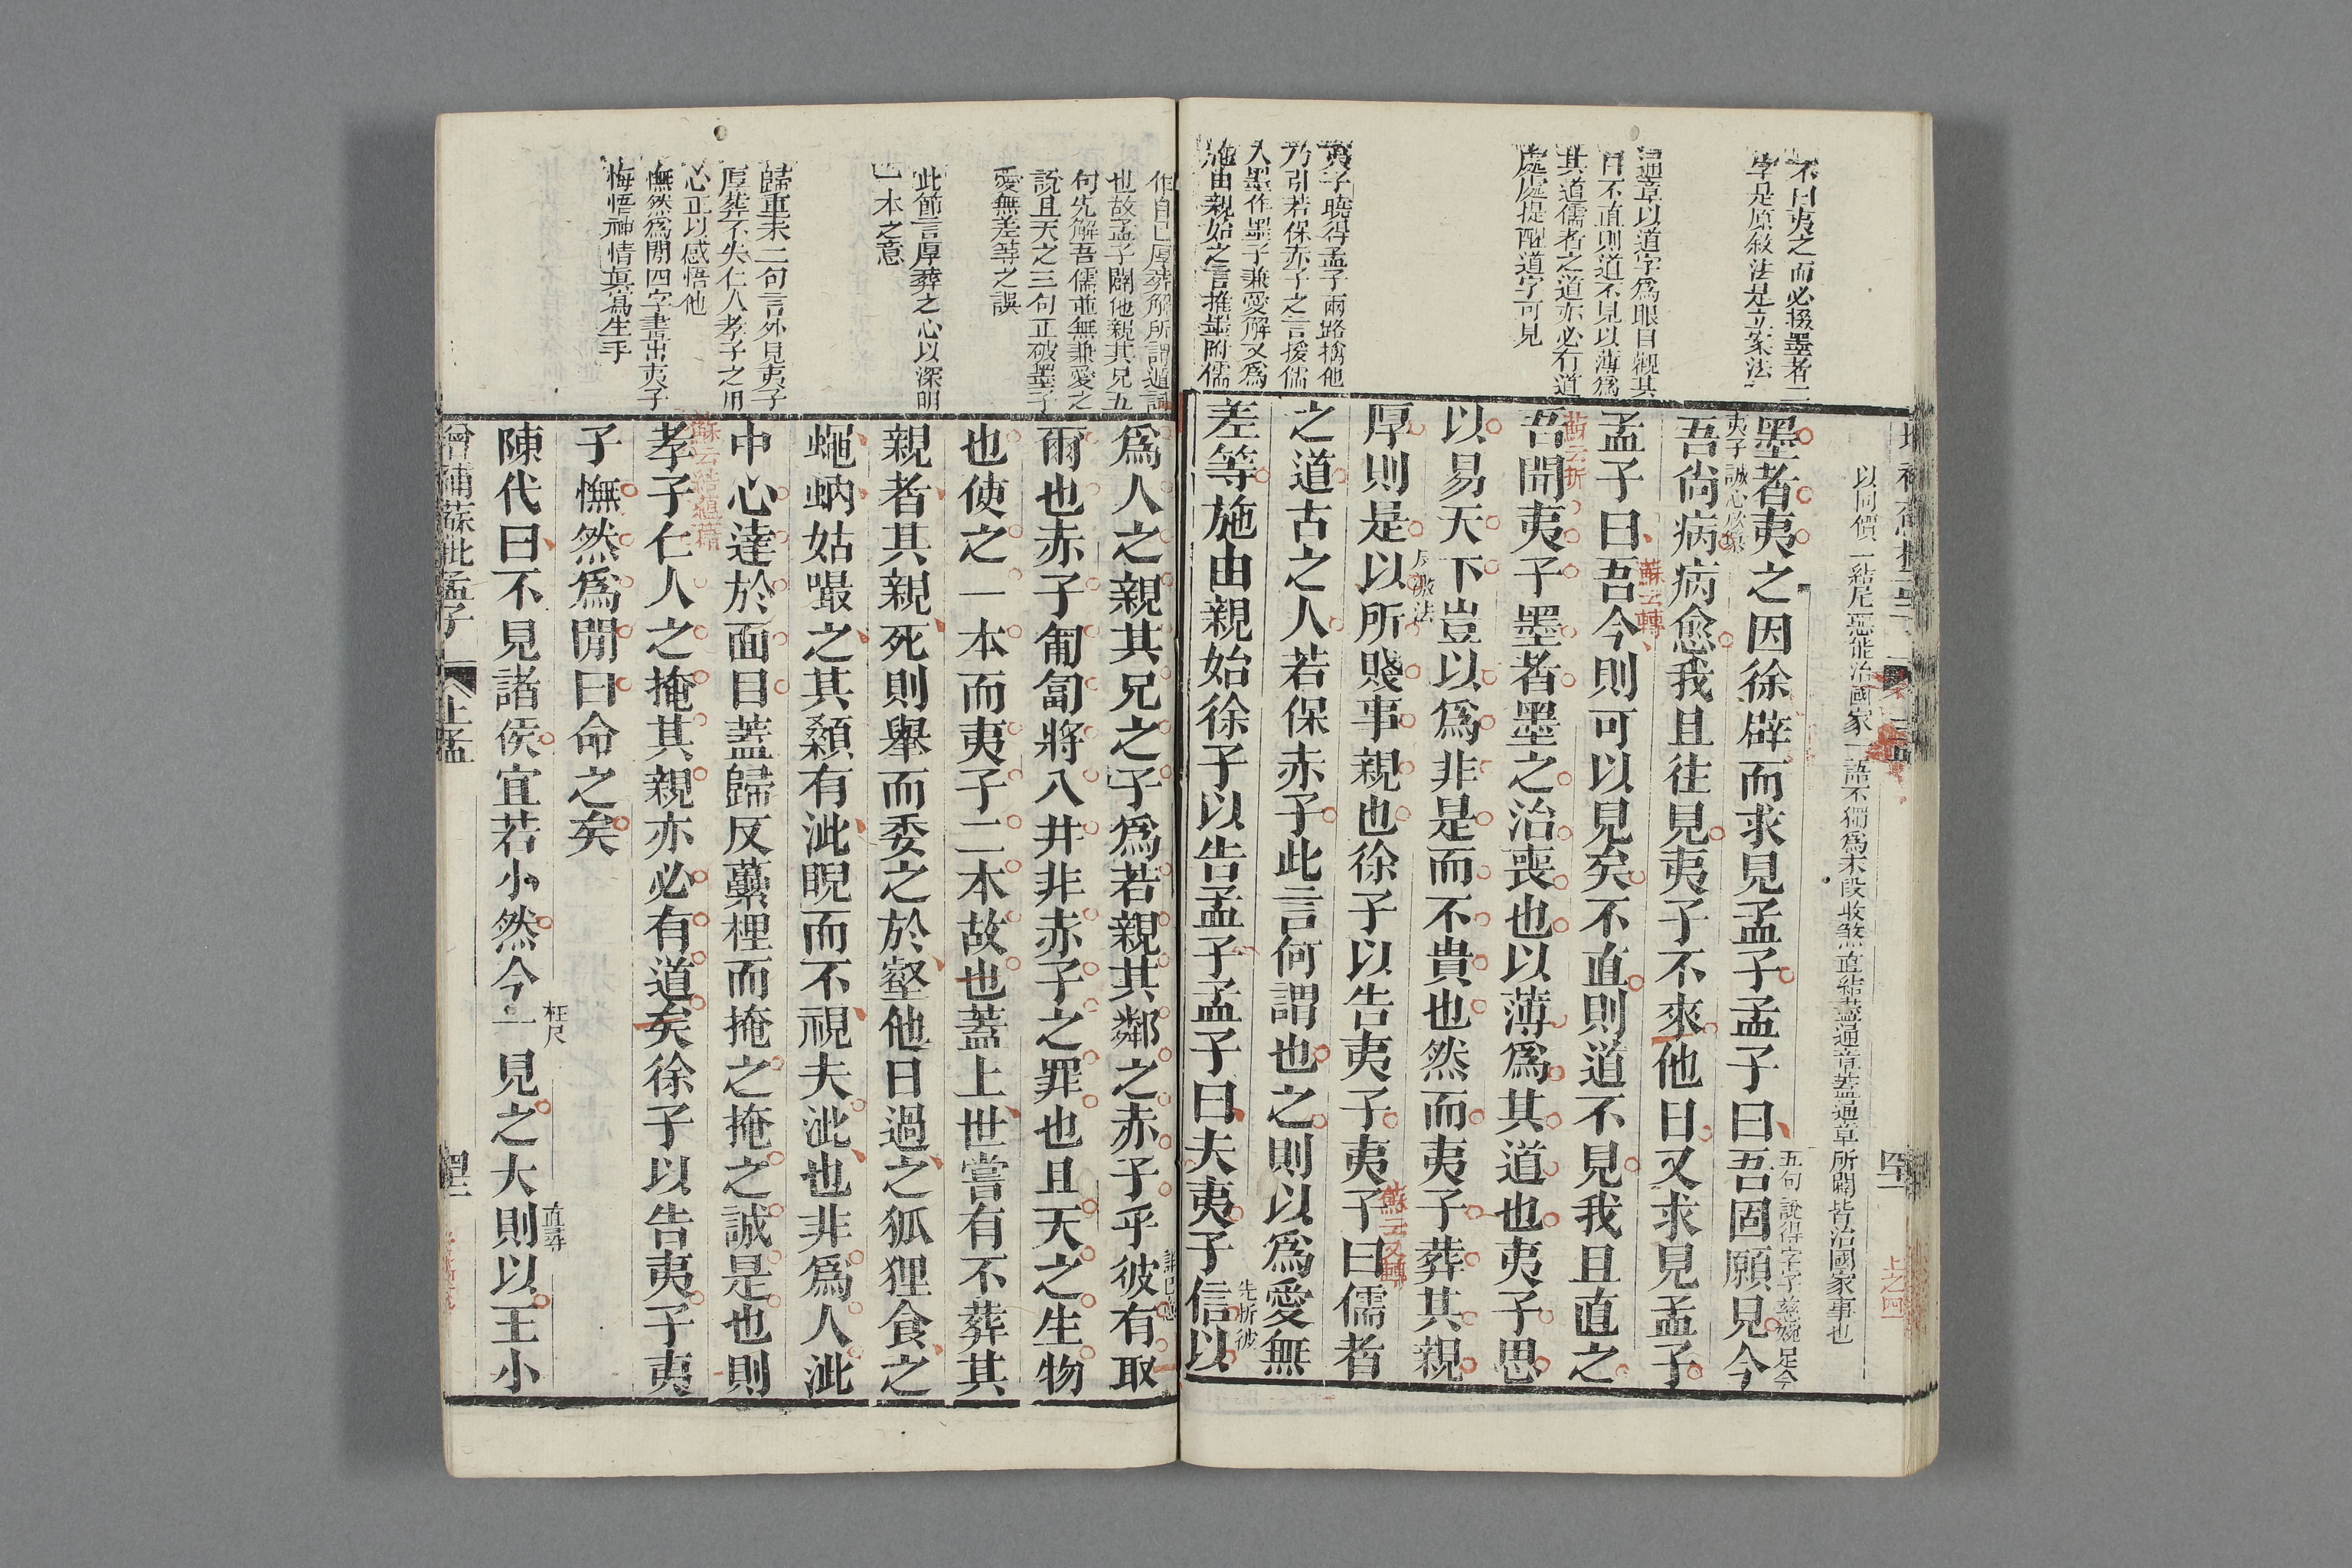 不曰夷之而必掇墨者二
字是原敘法是立案法
通章以道字爲眼目觀其
曰不直則道不見以薄爲
其道儒者之道亦必有道
處處提醒道字可見
夷子曉得孟子兩路擒他
乃引若保赤子之言援儒
入墨作墨子兼愛解又爲
施由親始之言推墨附儒
以同價一結尾惡能治國家一語不獨爲末段收煞直結盡通章蓋通章所闢皆治國家事也
墨者夷之因徐辟而求見孟子孟子曰吾固願見今
五句說得字字慈婉足令
夷子誠心
吾尚病病愈我且往見夷子不來他日又求見孟子
孟子曰吾今則可以見矣不直則道不見我且直之
蘇云轉
蘇云折
吾聞夷子墨者墨之治喪也以薄爲其道也夷子思
以易天下豈以爲非是而不貴也然而夷子葬其親
厚則是以所賤事親也徐子以告夷子夷子曰儒者
蘇云又轉
之道古之人若保赤子此言何謂也之則以爲愛無
先折彼
差等施由親始徐子以告孟子孟子曰夫夷子信以
四二
上之四
作自己厚葬解所謂遁詞
也故孟子闢他親其兄五
句先解吾儒並無兼愛之
說且天之三句正破墨子
愛無差等之誤
此節言厚葬之心以深明
一本之意
歸重末二句言外見夷子
厚葬不失仁人孝子之用
心正以感悟他
憮然爲閒四字畫出夷子
悔悟神情真寫生手
爲人之親其兄之子爲若親其鄰之赤子乎彼有取
爾也赤子匍匐將入井非赤子之罪也且天之生物
也使之一本而夷子二本故也蓋上世嘗有不葬其
親者其親死則舉而委之於壑他日過之狐狸食之
蠅蚋姑嘬之其顙有泚睨而不視夫泚也非爲人泚
中心達於面目蓋歸反虆梩而掩之掩之誠是也則
蘇云結蘊藉
孝子仁人之掩其親亦必有道矣徐子以告夷子夷
子憮然爲閒曰命之矣
枉尺
直尋
陳代曰不見諸侯宜若小然今一見之大則以王小
增補蘇批孟子
上孟
四二